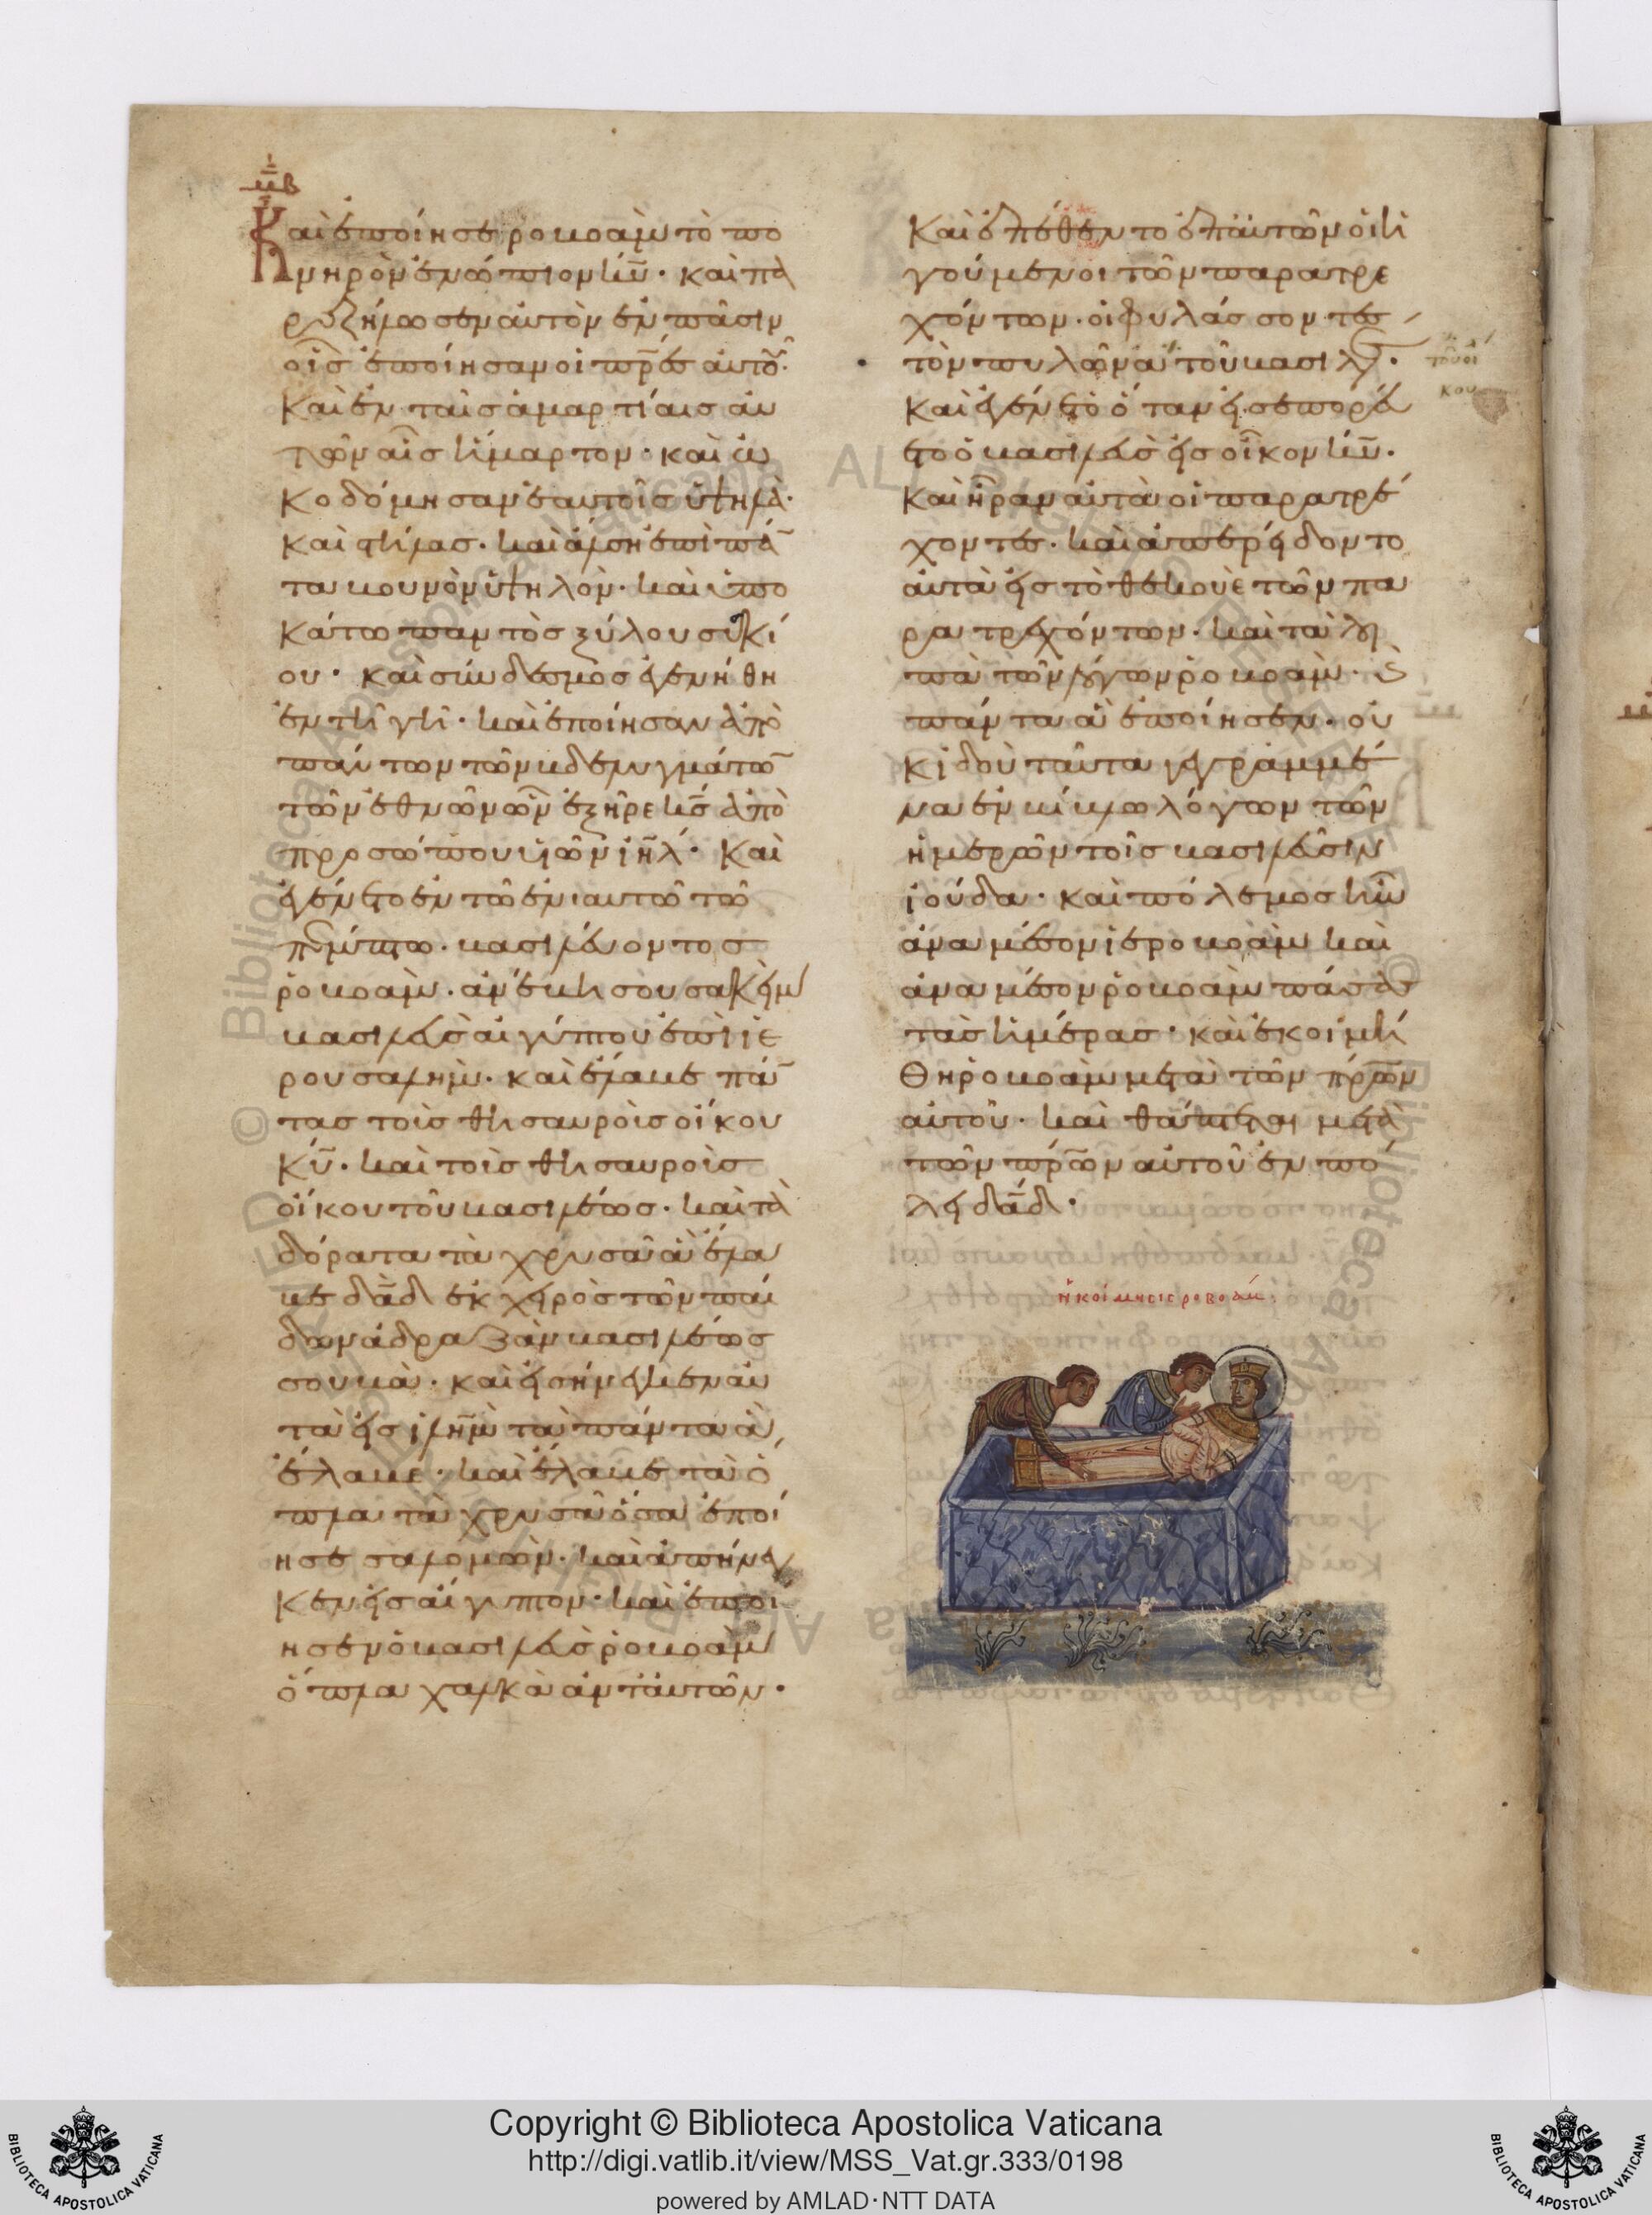 μβ
Καὶ ἐποίησε ῥοβοὰμ τὸ πο
νηρὸν ἐνώπιον κῡ· καὶ πα
ρεζήλωσεν αὐτὸν ἐν πᾶσιν
οἷς ἐποίησαν οἱ πρ̅ες αὐτοῦ·
Καὶ ἐν ταῖς ἁμαρτίαις αὐ
τῶν αἷς ἥμαρτον· καὶ ὠ
κοδόμησαν ἑαυτοῖς ὑψηλὰ·
καὶ στήλας· καὶ ἄλση ἐπὶ πά̅
τα βουνὸν ὑψηλὸν· καὶ ὑπο
κάτω παντὸς ξύλου συσκί
ου· καὶ σύνδεσμος ἐγενήθη
ἐν τῆ γῆ· καὶ ἐποίησαν ἀπὸ
πάντων τῶν βδελυγμάτω̅
τῶν ἐθνῶν ὧν ἐξῆρε κς̅ ἀπὸ
προσώπου υἱῶν ιη̅λ· Καὶ
ἐγένετο ἐν τῶ ἐνιαυτῶ τῶ
πέμπτω· βασιλεύοντος
ῥοβοὰμ· ἀνέβη σουσακεὶμ
βασιλεὺς αἰγύπτου ἐπὶ ἱε
ρουσαλὴμ· καὶ ἔλαβε πά̅
τας τοὶς θησαυροὶς οἴκου
Κυ̅· καὶ τοὶς θησαυροὶς
οἴκου τοῦ βασιλέως· καὶ τὰ
δόρατα τὰ χρυσᾶ ἃ ἔλα
βε δα̅δ ἐκ χειρὸς τῶν παί
δων ἀδραζὰν βασιλέως
σουβὰ· καὶ εἰσήνεγκεν αὐ
τὰ εἰς ιλη̅μ τὰ πάντα ἃ
ἔλαβε· καὶ ἔλαβε τὰ ὅ
πλα τὰ χρυσᾶ ὅσα ἐποί
ησε σαλομών· καὶ ἀπήνεγ
κεν εἰς αἴγυπτον· καὶ ἐποί
ησεν ὁ βασιλεὺς ῥοβοὰμ
ὅπλα χαλκᾶ ἀντ' αὐτῶν·
Καὶ ἐπέθεντο ἐπ' αὐτῶν οἱ ἡ
γούμενοι τῶν παρατρε
χόντων· οἱ φυλάσσοντες
τὸν πυλῶνα τοῦ βασιλέως·
τοῦ οἴ
κου
Καὶ ἐγένετο ὅταν εἰσεπορεύ
ετο ὁ βασιλεὺς εἰς οἶκον κυ̅·
Καὶ ἦραν αὐτὰ οἱ παρατρέ
χοντες· καὶ ἀπερείδοντο
αὐτὰ εἰς τὸ θεκουὲ τῶν πα
ρατρεχόντων· καὶ τὰ λοι
πὰ τῶν λόγων ῥοβοὰμ· καὶ
πάντα ἃ ἐποίησεν· οὐ
κ ἰδοὺ ταῦτα γεγραμμέ
να ἐν βίβλω λόγων τῶν
ἡμερῶν τοῖς βασιλεῦσιν
ἰούδα· καὶ πόλεμος ἦν
ἀνα μέσον ἱεροβοὰμ καὶ
ἀνα μέσον ῥοβοὰμ πάσας
τὰς ἡμέρας· καὶ ἐκοιμή
θη ῥοβοὰμ μετὰ τῶν πρ̅ων
αὐτοῦ· καὶ θάπτεται μετὰ
τῶν πρ̅ων αὐτοῦ ἐν πό
λει δα̅δ·
ἡ κοίμησις ροβοάμ:
Copyright © Biblioteca Apostolica Vaticana
http://digi.vatlib.it/view/MSS_Vat.gr.333/0198
powered by AMLAD·NTT DATA
BIBLIOTECA APOSTOLICA VATICANA
BIBLIOTECA APOSTOLICA VATICANA